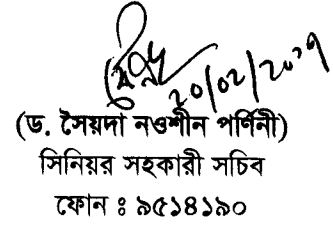 ২০/০২/২০১৭
(ড. সৈয়দা নওশীন পর্ণিনী)
সিনিয়র সহকারী সচিব
ফোন ঃ ৯৫১৪১৯০